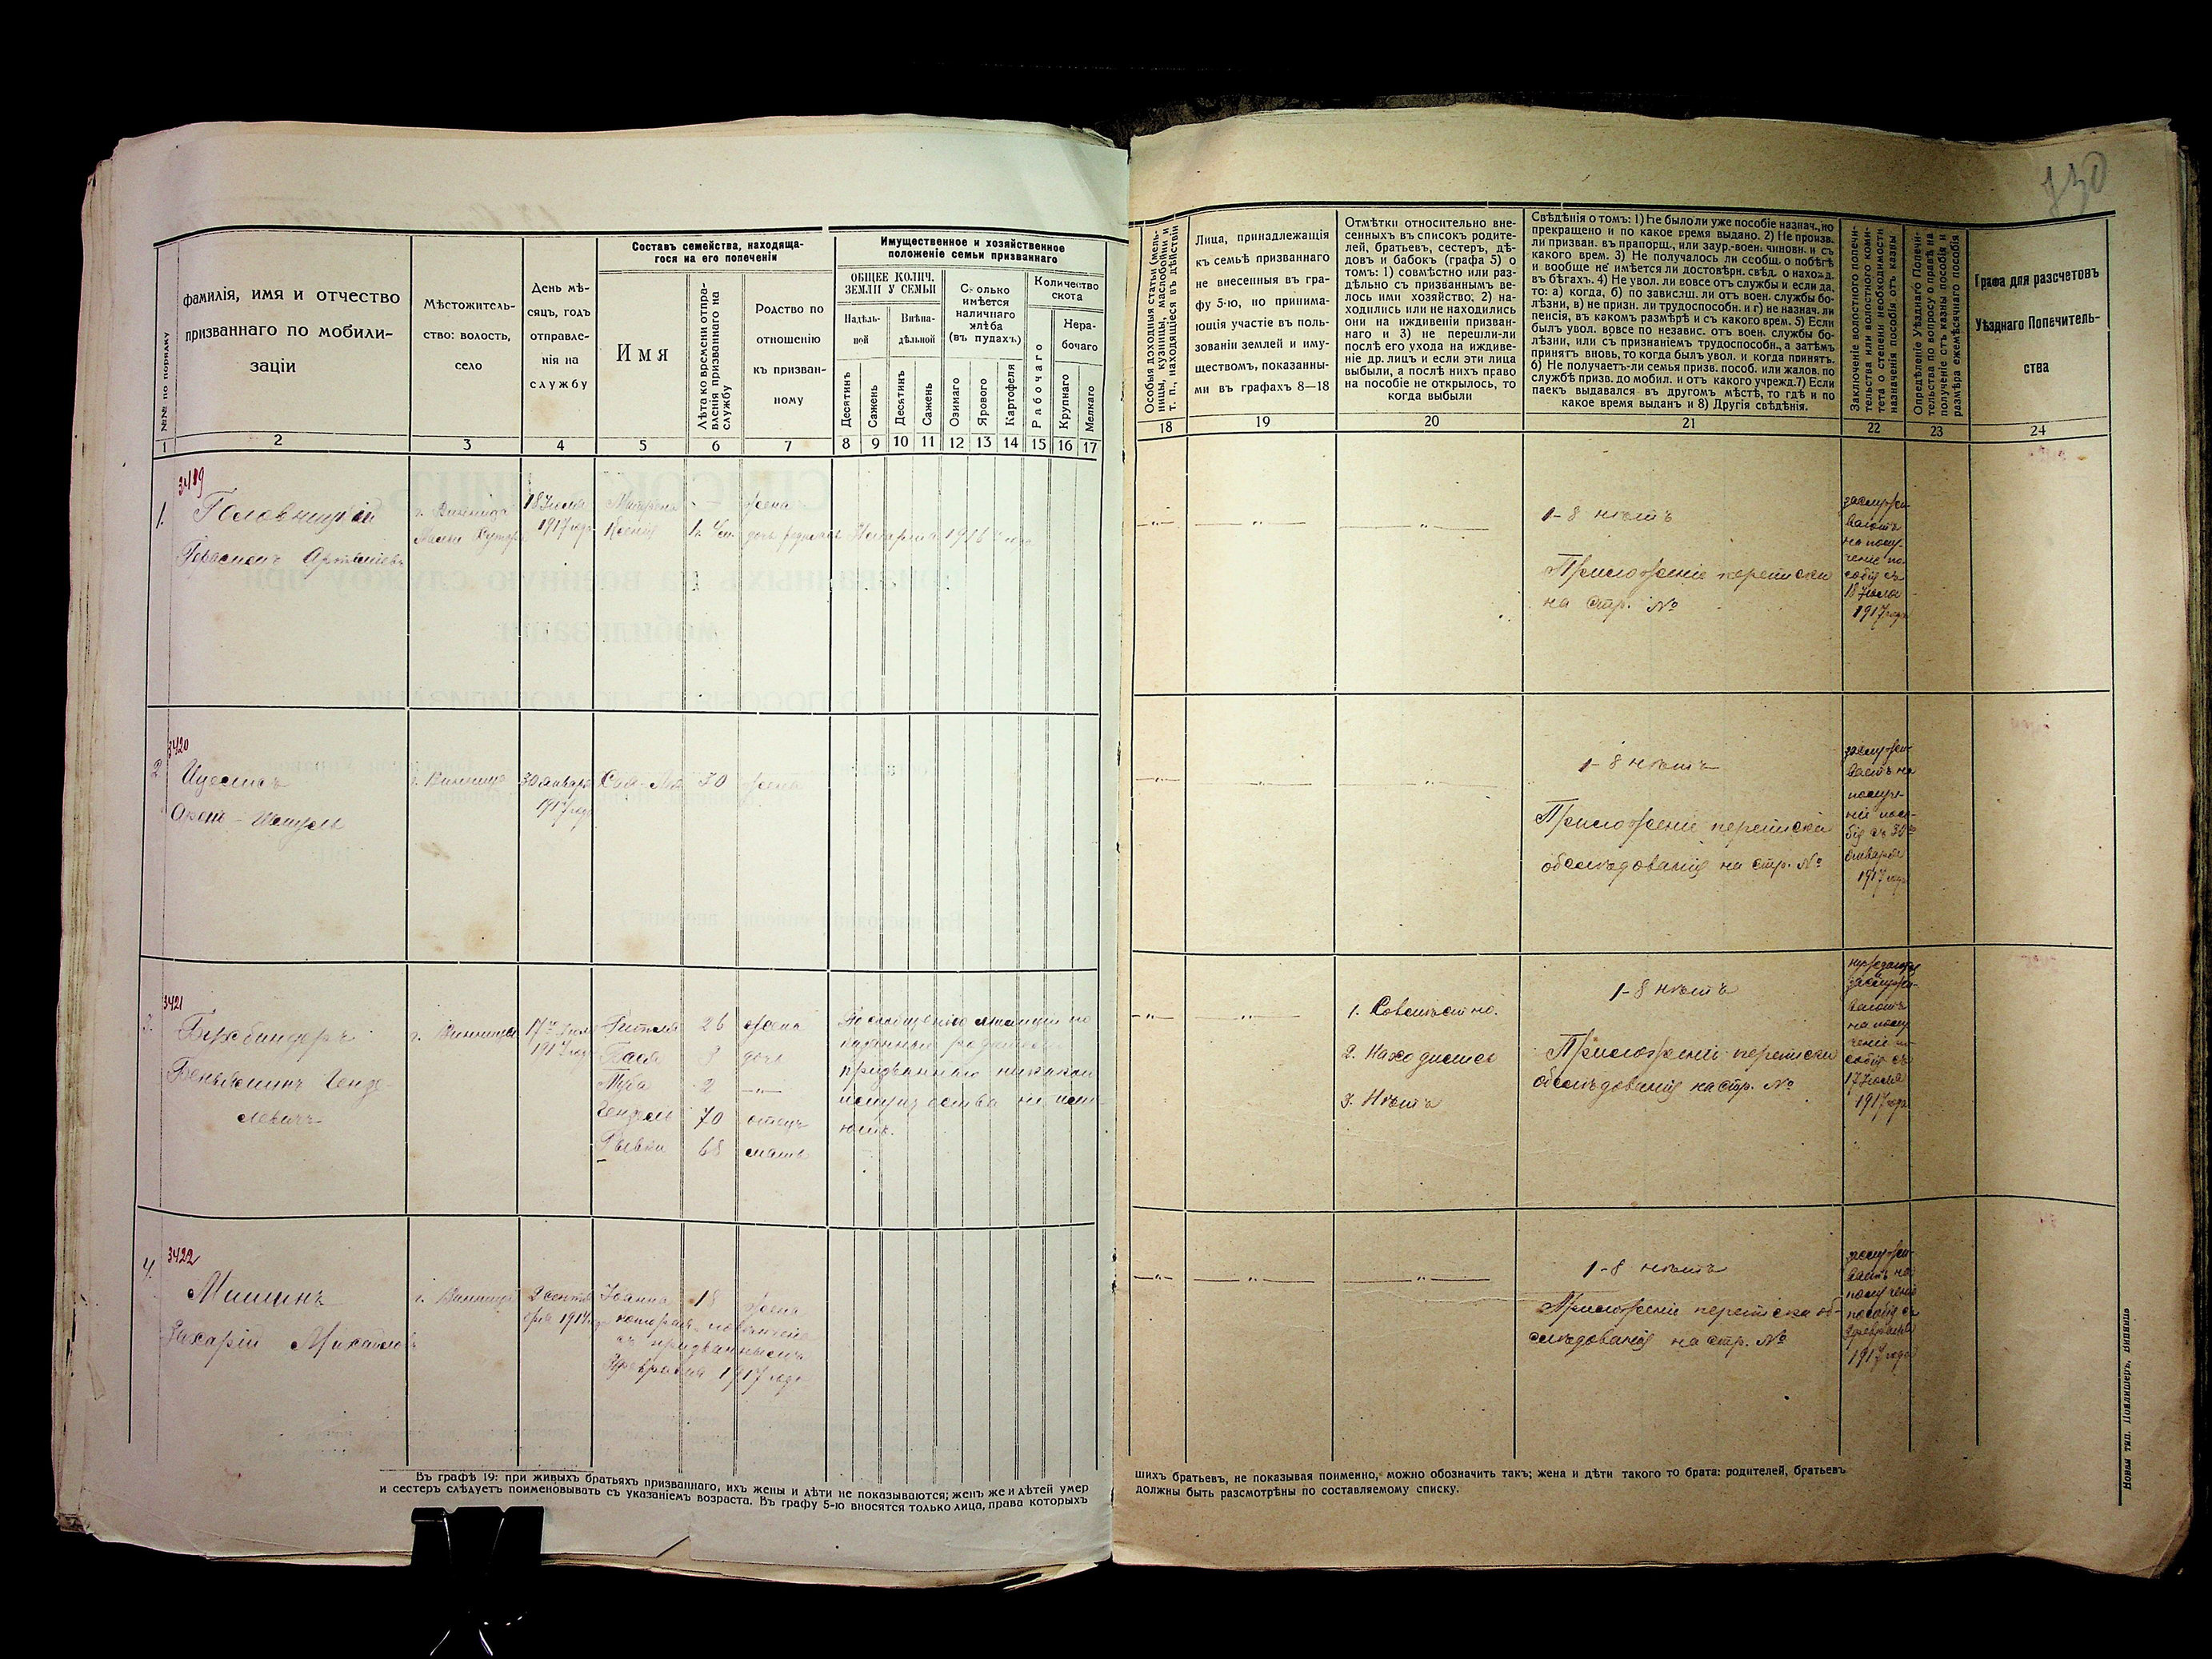 730
Составъ семейства, находяща-
гося на его попеченіи
Имущественное и хозяйственное
положеніе семьи призваннаго
№№ по порядку
фамилія, имя и отчество
призваннаго по мобили-
заціи
Мѣстожитель-
ство: волость,
село
День мѣ-
сяцъ, годъ
отправле-
нія на
службу
Имя
Лѣта ко времени отпра-
вленія призваннаго на
службу
Родство по
отношенію
къ призван-
ному
ОБЩЕЕ КОЛИЧ.
ЗЕМЛИ У СЕМЬИ
Надѣль-
ной
Внѣна-
дѣльной
Десятинъ
Сажень
Десятинъ
Сажень
Сколько
имѣется
наличнаго
хлѣба
(въ пудахъ)
Озимаго
Ярового
Картофеля
Количество
скота
Рабочаго
Нера-
бочаго
Крупнаго
Мелкаго
1 2 3 4 5 6 7 8 9 10 11 12 13 14 15 16 17
Особыя доходныя статьи (мель-
ницы, кузницы, маслобойни и
т. п., находящіеся въ дѣйствіи
Лица, принадлежащія
къ семьѣ призваннаго
не внесенныя въ гра-
фу 5-ю, но принима-
ющія участіе въ поль-
зованіи землей и иму-
ществомъ, показанны-
ми въ графахъ 8—18
Отмѣтки относительно вне-
сенныхъ въ списокъ родите-
лей, братьевъ, сестеръ, дѣ-
довъ и бабокъ (графа 5) о
томъ: 1) совмѣстно или раз-
дѣльно съ призваннымъ ве-
лось ими хозяйство, 2) на-
ходились или не находились
они на иждивеніи призван-
наго и 3) не перешли-ли
послѣ его ухода на иждиве-
ніе др. лицъ и если эти лица
выбыли, а послѣ нихъ право
на пособіе не открылось, то
когда выбыли
Свѣдѣнія о томъ: 1) Не было ли уже пособіе назнач., но
прекращено и по какое время выдано. 2) Не произв.
ли призван. въ прапорщ., или заур.-воен. чиновн. и съ
какого врем. 3) Не получалось ли сообщ. о побѣгѣ
и вообще не имѣется ли достовѣрн. свѣд. о наход.
въ бѣгахъ. 4) Не увол. ли вовсе отъ службы и если да,
то: а) когда, б) по зависящ. ли отъ воен. службы бо-
лѣзни, в) не призн. ли трудоспособн. и г) не назнач. ли
пенсія, въ какомъ размѣрѣ и съ какого врем. 5) Если
былъ увол. вовсе по независ. отъ воен. службы бо-
лѣзни, или съ признаніемъ трудоспособн., а затѣмъ
принятъ вновь, то когда былъ увол. и когда принятъ.
6) Не получаетъ-ли семья призв. пособ. или жалов. по
службѣ призв. до мобил. и отъ какого учрежд. 7) Если
паекъ выдавался въ другомъ мѣстѣ, то гдѣ и по
какое время выданъ и 8) Другія свѣдѣнія.
Заключеніе волостного попечи-
тельства или волостного коми-
тета о степени необходимости
назначенія пособія отъ казны
Опредѣленіе Уѣзднаго Попечи-
тельства по вопросу о правѣ на
полученіе отъ казны пособія и
размѣра ежемѣсячнаго пособія
Графа для разсчетовъ
Уѣзднаго Попечитель-
ства
18 19 20 21 22 23 24
3419
1.
Герасимъ
г. Винница
18 Іюля
1917 года
Ксенія
жена
1-8 нѣтъ
Приложеніе переписки
на стр. №
заслужи-
ваютъ
на полу-
ченіе по-
собія съ
18 Іюля
1917 года
3420
2.
г. Винница
30 января
1917 года
30
жена
1-8 нѣтъ
Приложеніе переписки
обслѣдованія на стр. №
заслужи-
ваетъ на
получе-
ніе посо-
бія съ 30го
января
1917 года
3421
3.
Беньяминъ Генде-
левичъ
г. Винница
17го Іюля
1917 года
26 жена
дочь
2 —„—
70 отецъ
Рывка 68 мать
1. Совмѣстно.
2. Находились
3. Нѣтъ
1-8 нѣтъ
Приложеніе переписки
обслѣдованія на стр. №
нуждаются
и
заслужи-
ваютъ
на полу-
ченіе по-
собія съ
17 Іюля
1917 года
3422
4.
Мишинъ
Захарій Михайловъ
г. Винница
2 сентя-
бря 1914 г.
Іоанна 18 жена
которая повѣнчана
съ призваннымъ
февраля 1917 года
1-8 нѣтъ
Приложеніе переписки об-
слѣдованія на стр. №
заслужи-
ваетъ на
полученіе
пособія съ
февраля
1917 года
Въ графѣ 19: при живыхъ братьяхъ призваннаго, ихъ жены и дѣти не показываются; женъ же и дѣтей умер
и сестеръ слѣдуетъ поименовывать съ указаніемъ возраста. Въ графу 5-ю вносятся только лица, права которыхъ
шихъ братьевъ, не показывая поименно, можно обозначить такъ; жена и дѣти такого то брата: родителей, братьевъ
должны быть разсмотрѣны по составляемому списку.